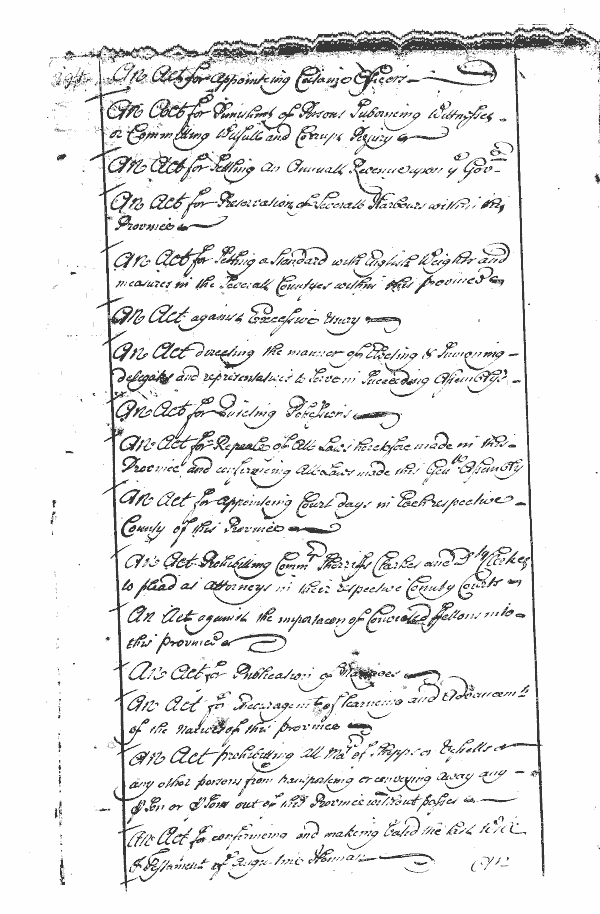 An Act for appointeing Certaine Officers
An Act for Punishmt of Persons Suborning Wittnesses
or Committing Wilfull and Corrupt Perjury
An Act for Settling an Annuall Revenue upon ye Govr
An Act for Preservation of Severall Harbours within this
Province
An Act for Setting a Standard with English Weights and
measures in the Severall Countyes within this Province
An Act against Excessive Usury
An Act directing the manner of Electing & Sumoning
delegates and representatives to serve in Succeeding Assemblys
An Act for Quieting Possessions
An Act for Repeale of All Laws heretofore made in this
Province and confirmeing All Laws made this Genll Assembly
An Act for appointeing Court days in Each respective
County of this Province
An Act Prohibitting Commrs Sherriffs Clarkes and Dpty Clerkes
to plead as Attorneys in their respective County Courts
An Act against the importacon of Convicted ffellons into
this Province
An Act for Publication of Marriages
An Act for Encouragemt of Learneing and Advancemt
of the Natives of this Province
An Act prohibitting All Mars of Shipps or Vessells or
any other persons from transporteing or conveying away any
pson or psons out of this Province without passes
An Act for confirmeing and making valid the Last Will
& Testament of Augustine Herman